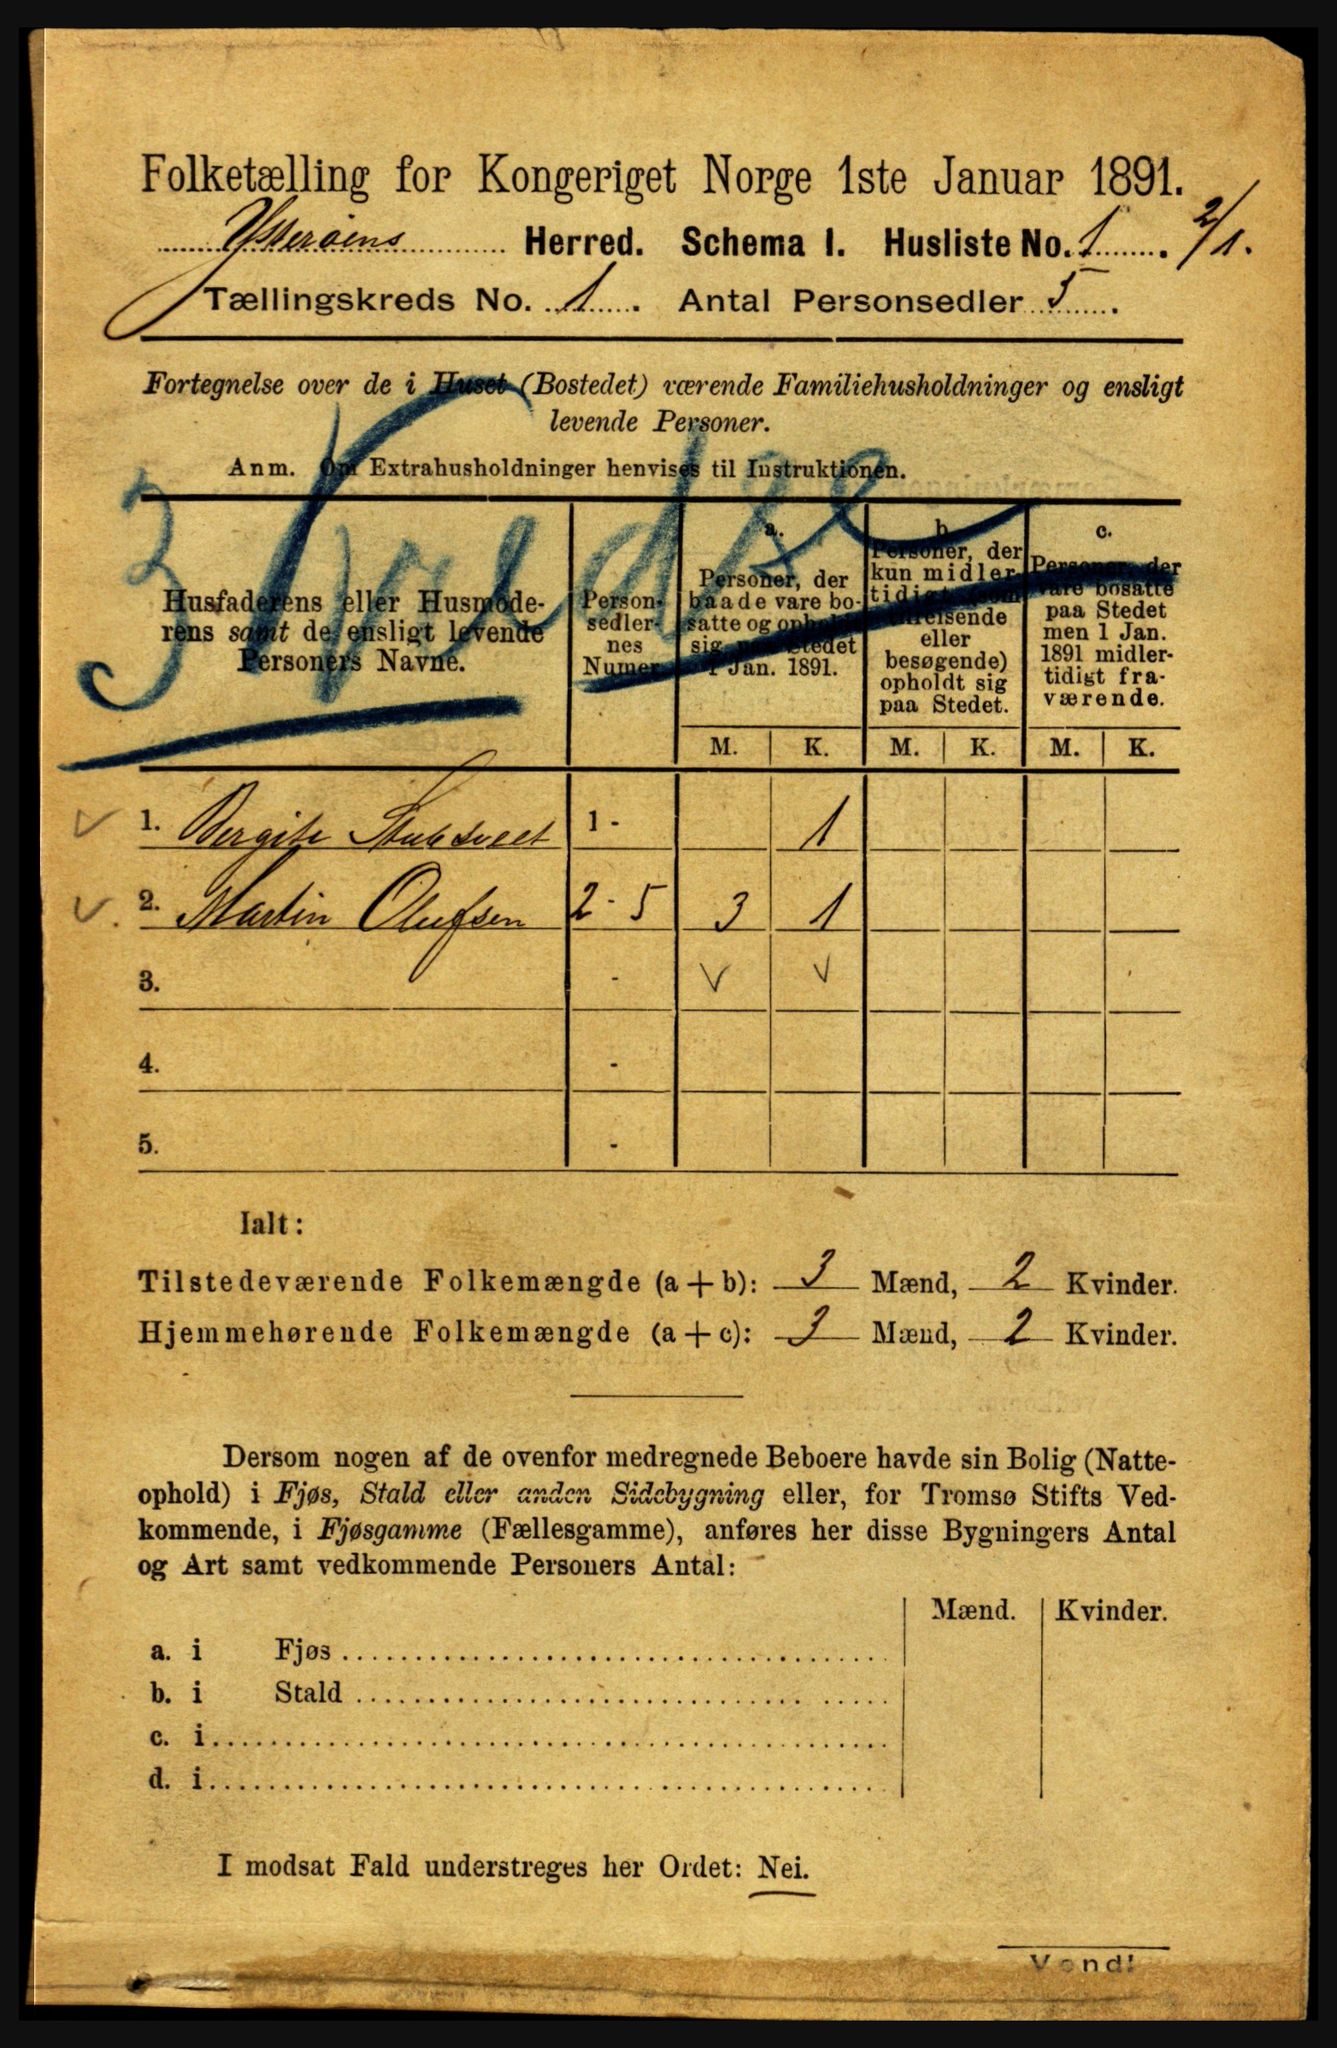 Folketælling for Kongeriget Norge 1ste Januar 1891.
Ytterøens Herred. Schema I. Husliste No. 1. 2/1.
Tællingskreds No. 1. Antal Personsedler 5.
Fortegnelse over de i Huset (Bostedet) værende Familiehusholdninger og ensligt
levende Personer.
Anm. Om Extrahusholdninger henvises til Instruktionen.
3
Husfaderens eller Husmode-
rens samt de ensligt levende
Personers Navne.
Person-
sedler-
nes
Numer.
a.
Personer, der
baade vare bo-
satte og opholdt
sig paa Stedet
1 Jan. 1891.
b.
Personer, der
kun midler-
tidigt (som
tilreisende
eller
besøgende)
opholdt sig
paa Stedet.
c.
Personer, der
vare bosatte
paa Stedet
men 1 Jan.
1891 midler-
tidigt fra-
værende.
M. K. M. K. M. K.
1. Bergite 1 - 1
2. Martin Olufsen 2 - 5 3 1
3. -
4. -
5. -
Ialt:
Tilstedeværende Folkemængde (a + b): 3 Mænd, 2 Kvinder.
Hjemmehørende Folkemængde (a + c): 3 Mænd, 2 Kvinder.
Dersom nogen af de ovenfor medregnede Beboere havde sin Bolig (Natte-
ophold) i Fjøs, Stald eller anden Sidebygning eller, for Tromsø Stifts Ved-
kommende, i Fjøsgamme (Fællesgamme), anføres her disse Bygningers Antal
og Art samt vedkommende Personers Antal:
Mænd. Kvinder.
a. i Fjøs
b. i Stald
c. i
d. i
I modsat Fald understreges her Ordet: Nei.
Vend!